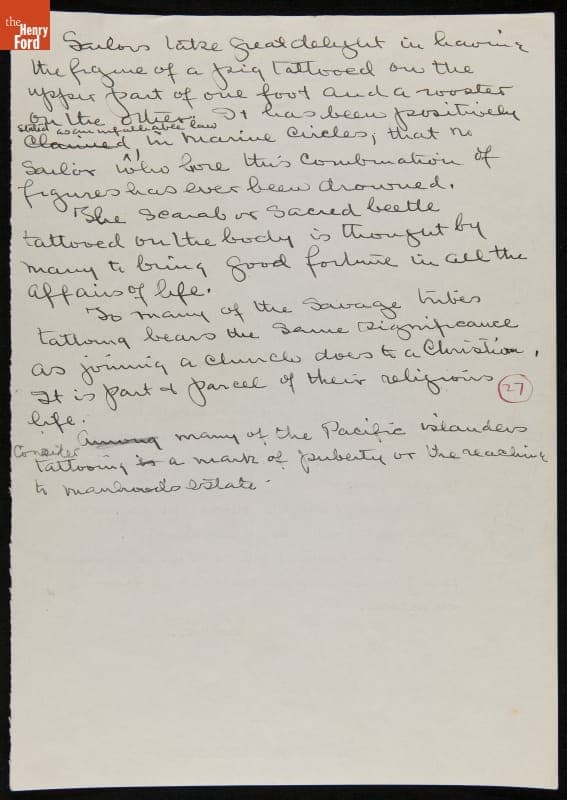 the
Henry
Ford
Sailors take great delight in having
the figure of a pig tattooed on the
upper part of one foot and a rooster
on the other. It has been positively
stated as an infalliable law
Claimed in Marine Circles, that no
Sailor who bore this combination of
figures has ever been drowned.
The Scarab or Sacred beetle
tattooed on the body is thought by
many to bring good fortune in all the
affairs of life.
To many of the Savage tribes
tattooing bears the same significance
as joining a church does to a Christian.
It is part & parcel of their religious
27
life.
Among many of the Pacific islanders
Consider
tattooing is a mark of puberty or the reaching
to manhoods estate.